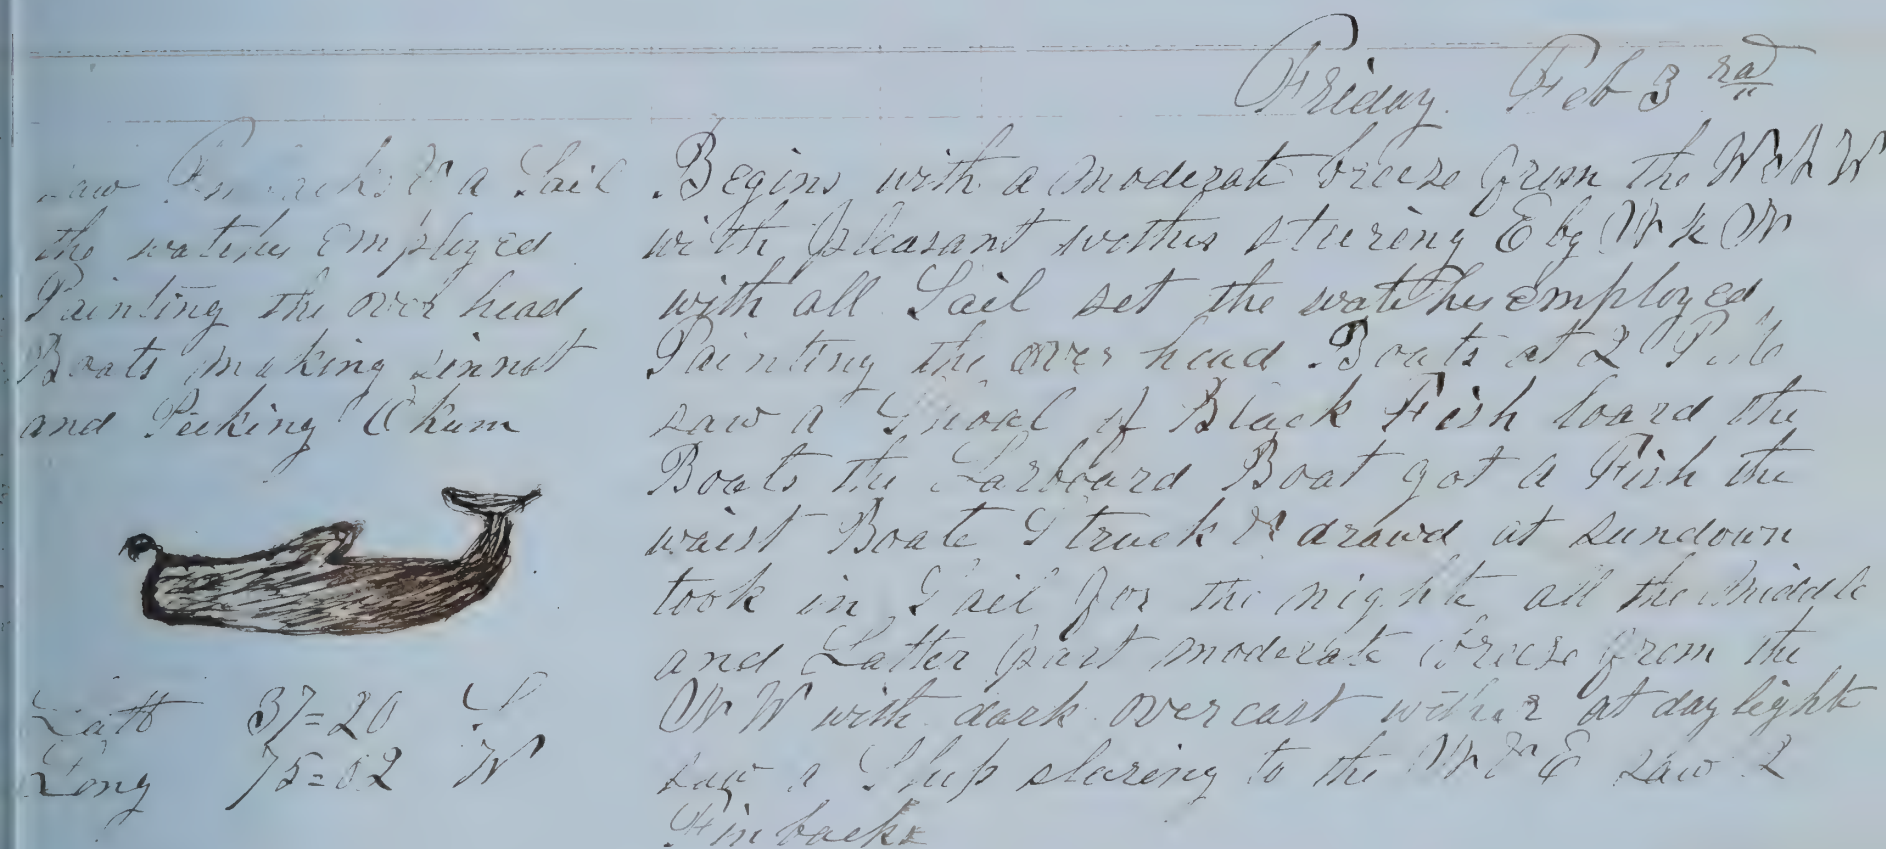 Friday. Feb 3rd
Saw Finbacks & a Sail
the watches Employed
Painting the over head
Boats making sinnot
and Peeking Okum
Latt 37=20 S
Long 75=52 W
Begins with a moderate breeze from the W & W
with pleasant wether stureing E by N & N
with all Sail set the watches employed
Painting the over head Boats at 2 P.M
saw a Shoal of Black Fish loard the
Boats the Larboard Boat got a Fish the
waist Boate Struck & drawd at sundown
took in Sail for the night all the middle
and Latter part moderate breeze from the
N W with dark overcast wether at day light
saw a Ship staring to the N & E saw 2
Finbacks